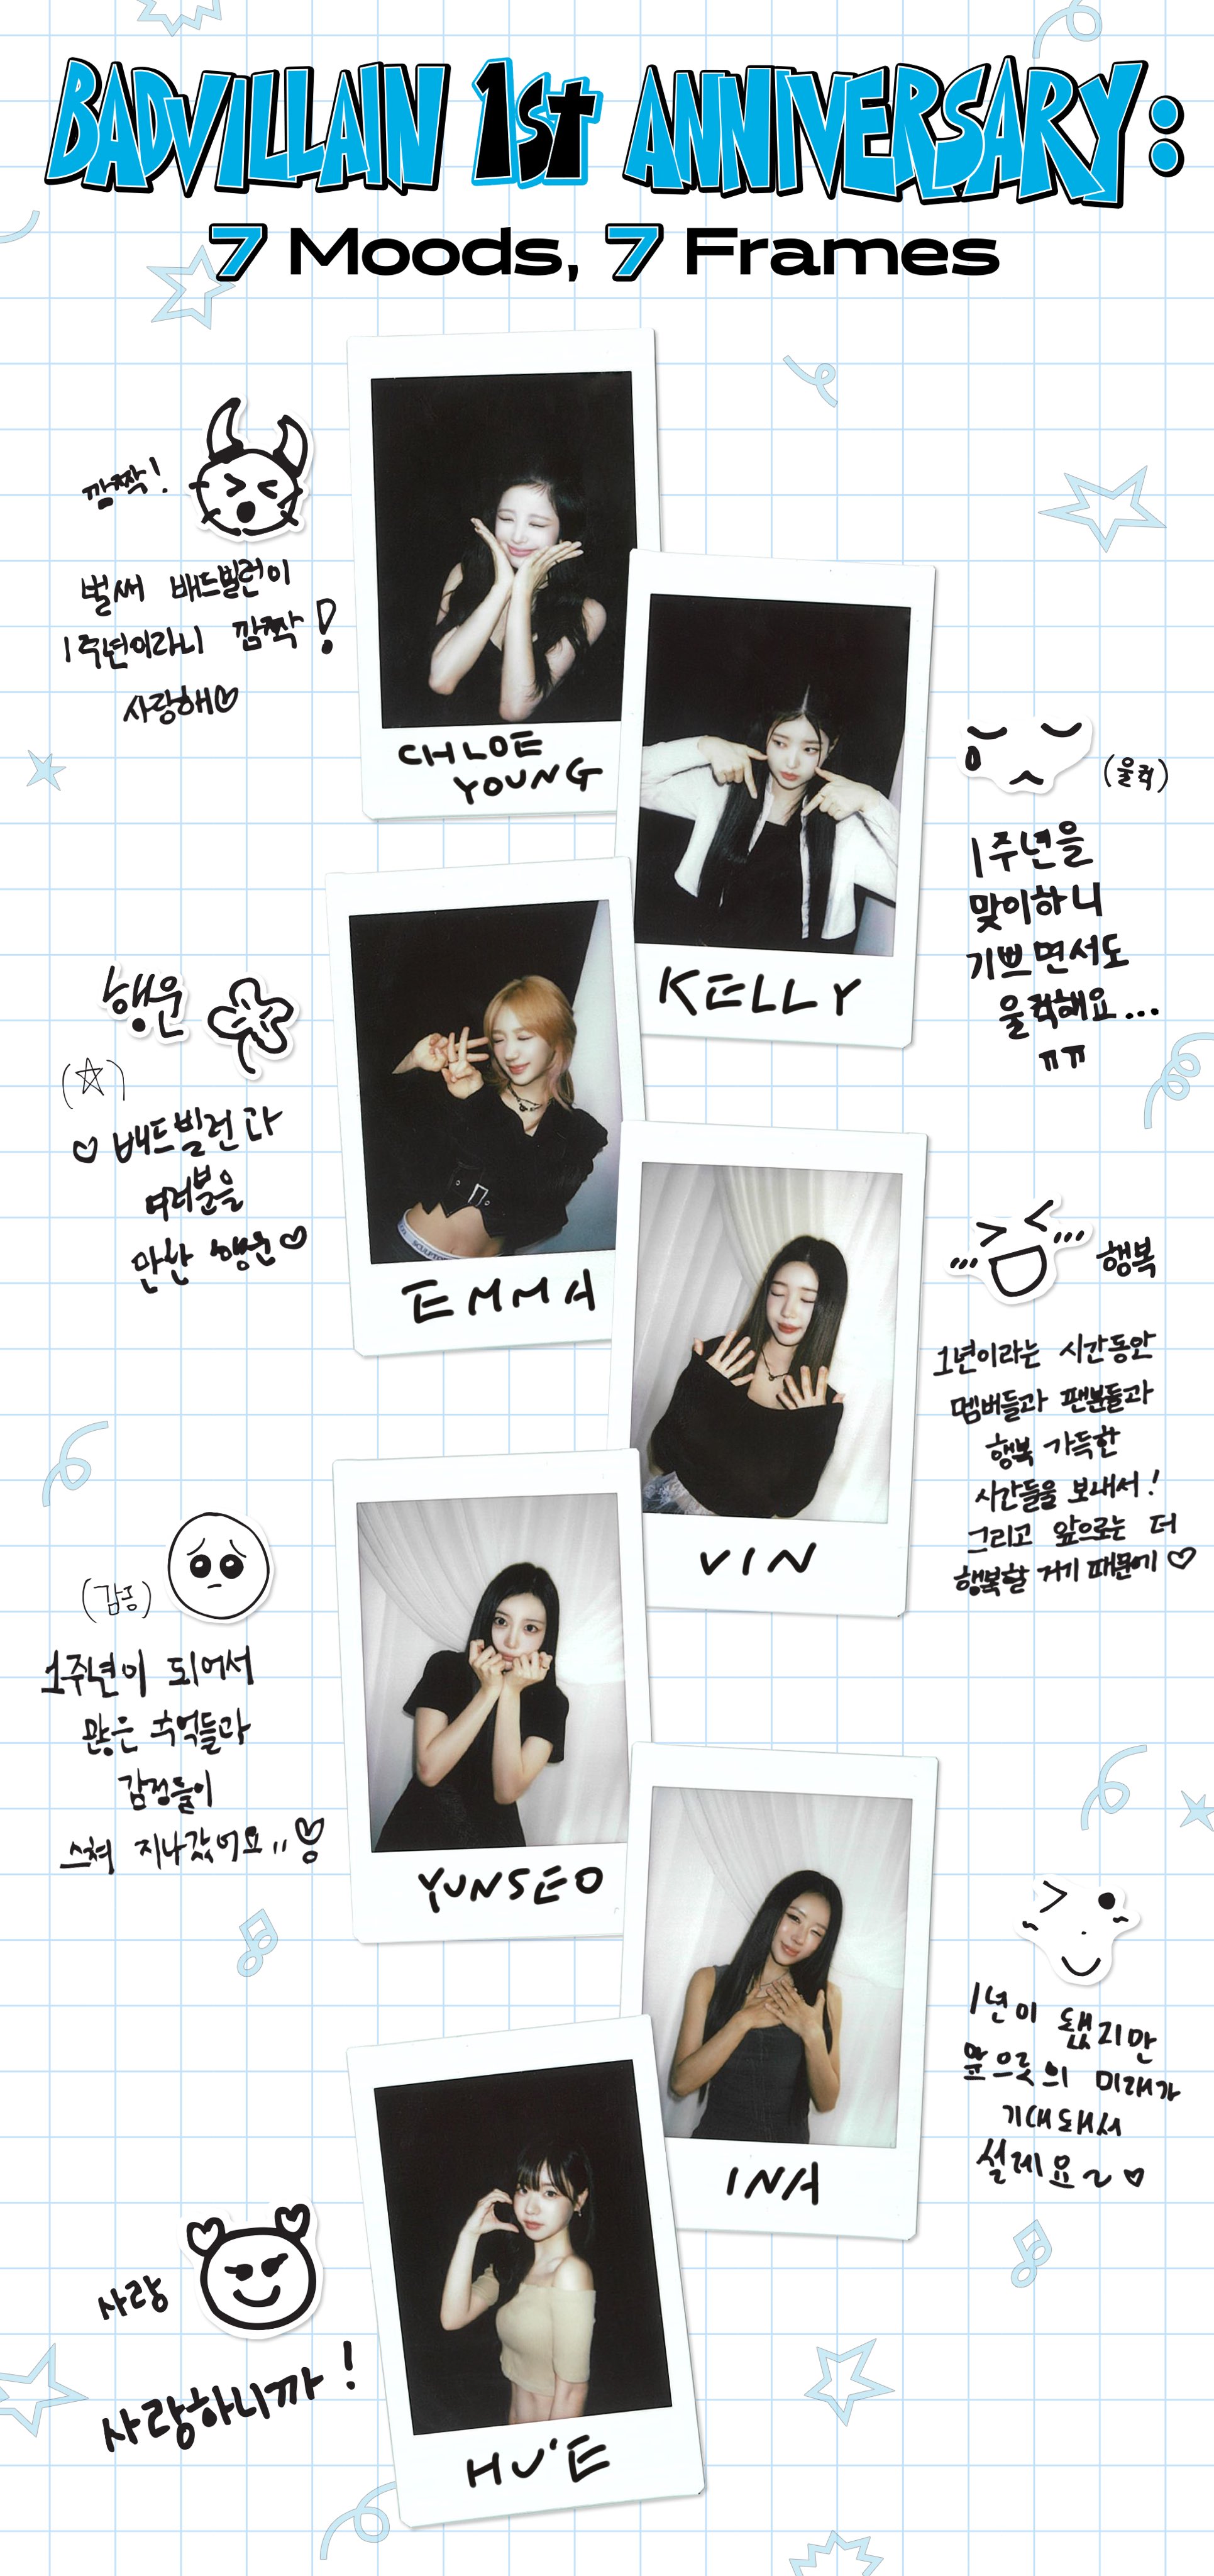 BADVILLAIN 1st ANNIVERSARY:
7 Moods, 7 Frames
깜짝!
벌써 배드빌런이
1주년이라니 깜짝!
사랑해♡
CHLOE
YOUNG
(울컥)
1주년을
맞이하니
기쁘면서도
울컥해요...
ㅠㅠ
KELLY
행운
(☆)
♡ 배드빌런과
여러분을
만난 행운♡
EMMA
행복
1년이라는 시간동안
멤버들과 팬분들과
행복 가득한
시간들을 보내서!
그리고 앞으로는 더
행복할 거기 때문에♡
VIN
(감동)
1주년이 되어서
많은 추억들과
감정들이
스쳐 지나갔어요,,♡
YUNSEO
1년이 됐지만
앞으롯의 미래가
기대돼서
설레요~♡
INA
사랑
사랑하니까!
HU'E